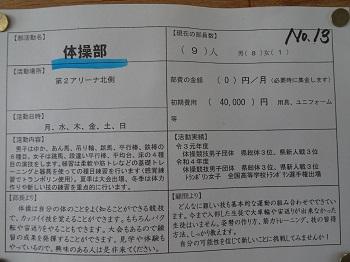 【部活動名】
体操部
【活動場所】
第2アリーナ北側
【活動日時】
月、水、木、金、土、日
【活動内容】
男子はゆか、あん馬、吊り輪、跳馬、平行棒、鉄棒の
6種目、女子は跳馬、段違い平行棒、平均台、床の4種
目の演技をします。日頃は柔軟や筋トレなどの基礎トレ
ーニングと器具を使っての種目練習を行います(感覚練
習でトランポリン使用)。夏季は大会出場、冬季は体力
作りや新しい技の練習を重点的に行います。
【部長より】
体操は自分の体のことをよく知ることができる競技
で、カッコイイ技を覚えることができます。もちろんバク
転や宙返りをやることもできます。大会もあるので練
習の成果を発揮することができます。見学や体験も
やっているので、興味のある人は是非来てください。
No.13
【現在の部員数】
(9)人 男(8)女(1)
部費の金額 (0)円/月(必要時に集金します)
初期費用 (40,000)円 用具、ユニフォーム
等
【活動実績】
令和元年度
体操競技男子団体 県総体3位、県新人戦3位
令和4年度
体操競技男子団体 県総体3位、県新人戦3位
トランポリン女子 全国高等学校トランポリン選手権出場
【顧問より】
どんなに難しい技も基本的な運動の組み合わせでできてい
ます。今まで入部した生徒で大車輪や宙返りが出来なかった
生徒はいません。姿勢の作り方、筋力トレーニング、技の習得
方法、しっかり教えます。
自分の可能性を信じて新しいことに挑戦してみませんか!